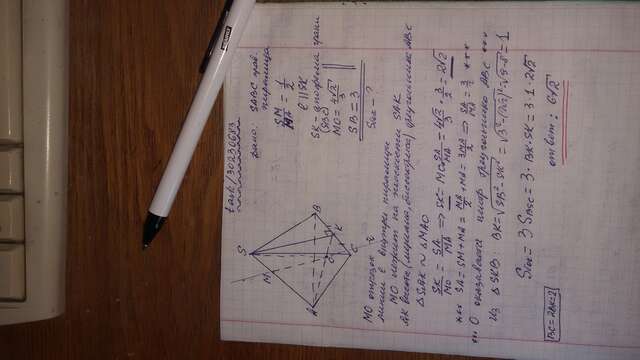 task/30230683
S
M
A
B
O
K
C
дано: SABC прав.
пирамида
SM/MA = 1/2
ℓ || SK
SK - апофема грани
(SBC)
MO = 4√2/3
SB = 3
Sбок - ?
MO отрезок
линии ℓ внутри пирамиды
MO лежит на плоскости SAK
AK высота (медиана, биссектриса) треугольника ABC
△SAK ~ △MAO
SK/MO = SA/MA ⇒ SK = MO·SA/MA = 4√2/3 · 3/2 = 2√2
*** SA = SM + MA = MA/2 + MA = 3MA/2 ⇒ SA/MA = 3/2 ***
*** O оказывается центр треугольника ABC ***
Из △SKB: BK = √SB² - SK² = √3² - (2√2)² = √9-8 = 1
Sбок = 3 SBSC = 3·BK·SK = 3·1·2√2
BC = 2BK = 2
ответ: 6√2